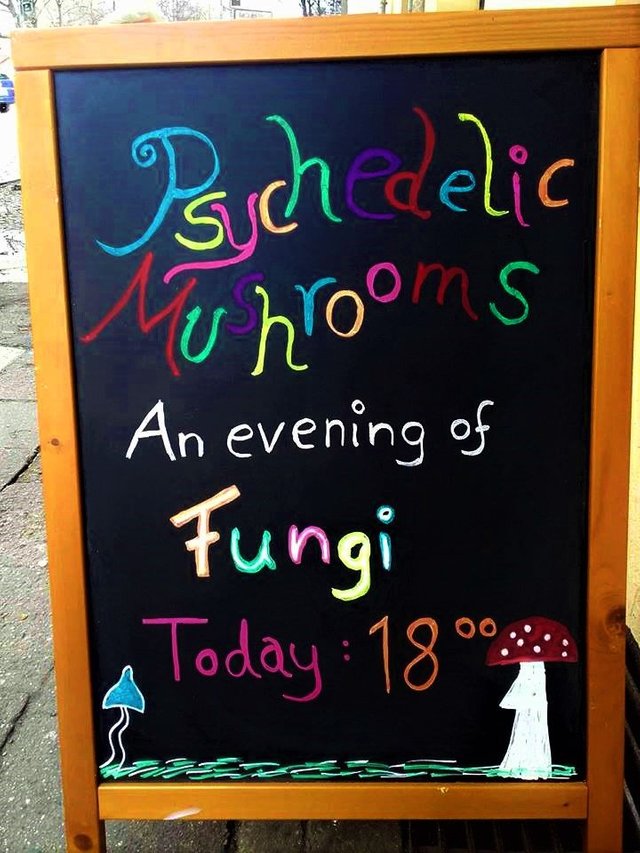 Psychedelic
Mushrooms
An evening of
Fungi
Today: 18⁰⁰